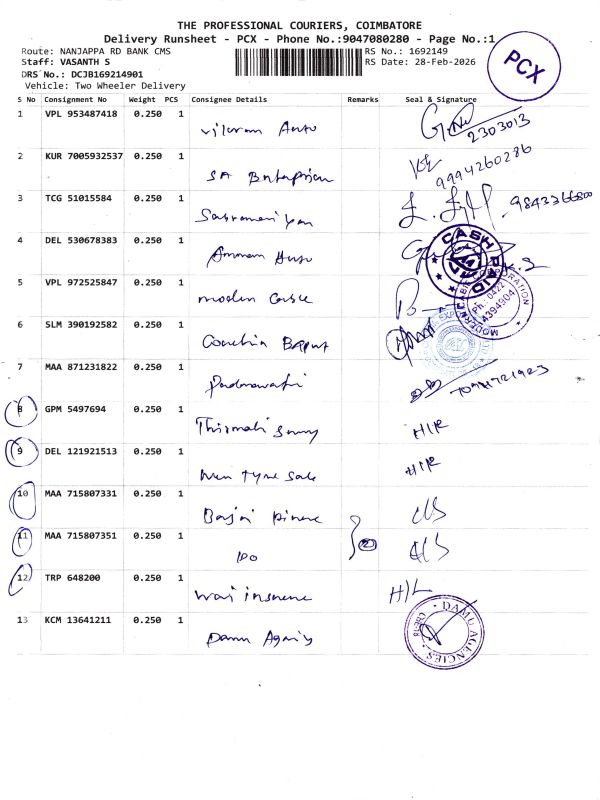 THE PROFESSIONAL COURIERS, COIMBATORE
Delivery Runsheet - PCX - Phone No.:9047080280 - Page No.:1
Route: NANJAPPA RD BANK CMS
RS No.: 1692149
Staff: VASANTH S
RS Date: 28-Feb-2026
DRS No.: DCJB169214901
Vehicle: Two Wheeler Delivery
PCX
S No Consignment No Weight PCS Consignee Details Remarks Seal & Signature
1 VPL 953487418 0.250 1 Vikram Auto 2303013
2 KUR 7005932537 0.250 1 SA Enterprises 9994260286
3 TCG 51015584 0.250 1 9843366800
4 DEL 530678383 0.250 1 Amman Auto CASH PAID
5 VPL 972525847 0.250 1 modern Ph: 0422
6 SLM 390192582 0.250 1
7 MAA 871231822 0.250 1
8 GPM 5497694 0.250 1
9 DEL 121921513 0.250 1 New tyre sale
10 MAA 715807331 0.250 1 Bajaj
11 MAA 715807351 0.250 1
12 TRP 648200 0.250 1 H/L
13 KCM 13641211 0.250 1 Damu DAMU AGENCIES